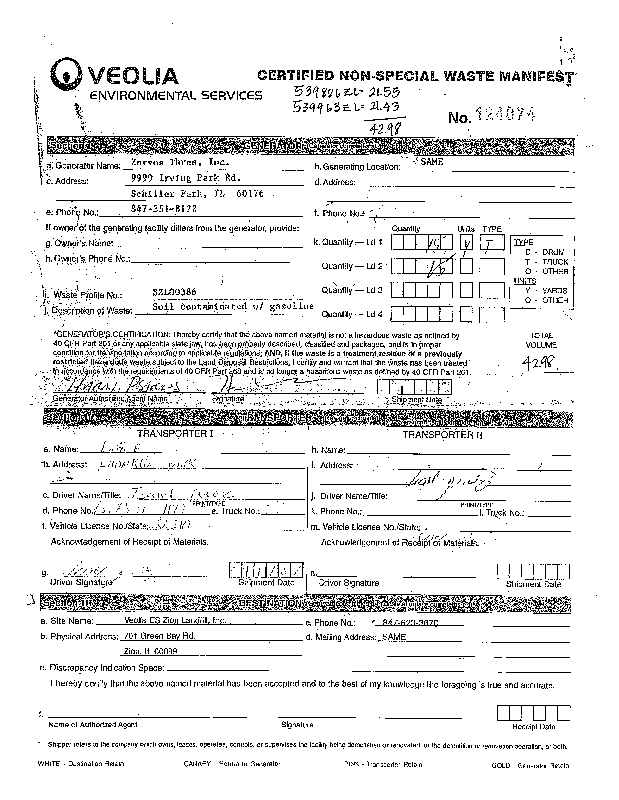 VEOLIA
ENVIRONMENTAL SERVICES
CERTIFIED NON-SPECIAL WASTE MANIFEST
539806ZL= 21.55
539963ZL= 21.43
42.98
No.
GENERATOR
a. Generator Name: Zarvos Hotes, Inc.
h. Generating Location: SAME
c. Address: 9999 Irving Park Rd.
d. Address:
Schiller Park, IL 60176
e. Phone No.: 847-351-8122
f. Phone No.:
If owner of the generating facility differs from the generator, provide:
g. Owner's Name:
h. Owner's Phone No.:
Quantity Units TYPE
k. Quantity — Ld 1 16 Y T
Quantity — Ld 2 16
Quantity — Ld 3
Quantity — Ld 4
TYPE
D - DRUM
T - TRUCK
O - OTHER
UNITS
Y - YARDS
O - OTHER
i. Waste Profile No.:
j. Description of Waste: Soil contaminated w/ gasoline
"GENERATOR'S CERTIFICATION: I hereby certify that the above named material is not a hazardous waste as defined by
40 CFR Part 261 or any applicable state law, has been properly described, classified and packaged, and is in proper
condition for transportation according to applicable regulations; AND, if the waste is a treatment residue of a previously
restricted hazardous waste subject to the Land Disposal Restrictions, I certify and warrant that the waste has been treated
in accordance with the requirements of 40 CFR Part 268 and is no longer a hazardous waste as defined by 40 CFR Part 261.
TOTAL
VOLUME
42.98
Generator Authorized Agent Name
Signature
Shipment Date
TRANSPORTER I
TRANSPORTER II
a. Name:
h. Name:
b. Address:
i. Address:
c. Driver Name/Title:
j. Driver Name/Title:
PRINT/TYPE
PRINT/TYPE
d. Phone No.:
e. Truck No.:
k. Phone No.:
l. Truck No.:
f. Vehicle License No./State:
m. Vehicle License No./State:
Acknowledgement of Receipt of Materials.
Acknowledgement of Receipt of Materials.
g.
n.
Driver Signature
Shipment Date
Driver Signature
Shipment Date
DESTINATION
a. Site Name: Veolia ES Zion Landfill, Inc.
c. Phone No.:
b. Physical Address: 701 Green Bay Rd.
d. Mailing Address: SAME
Zion, IL 60099
e. Discrepancy Indication Space:
I hereby certify that the above named material has been accepted and to the best of my knowledge the foregoing is true and accurate.
f.
Name of Authorized Agent
Signature
Receipt Date
* Shipper refers to the company which owns, leases, operates, controls, or supervises the facility being demolition or renovated, or the demolition or renovation operation, or both.
WHITE - Destination Retain
CANARY - Return to Generator
PINK - Transporter Retain
GOLD - Generator Retain